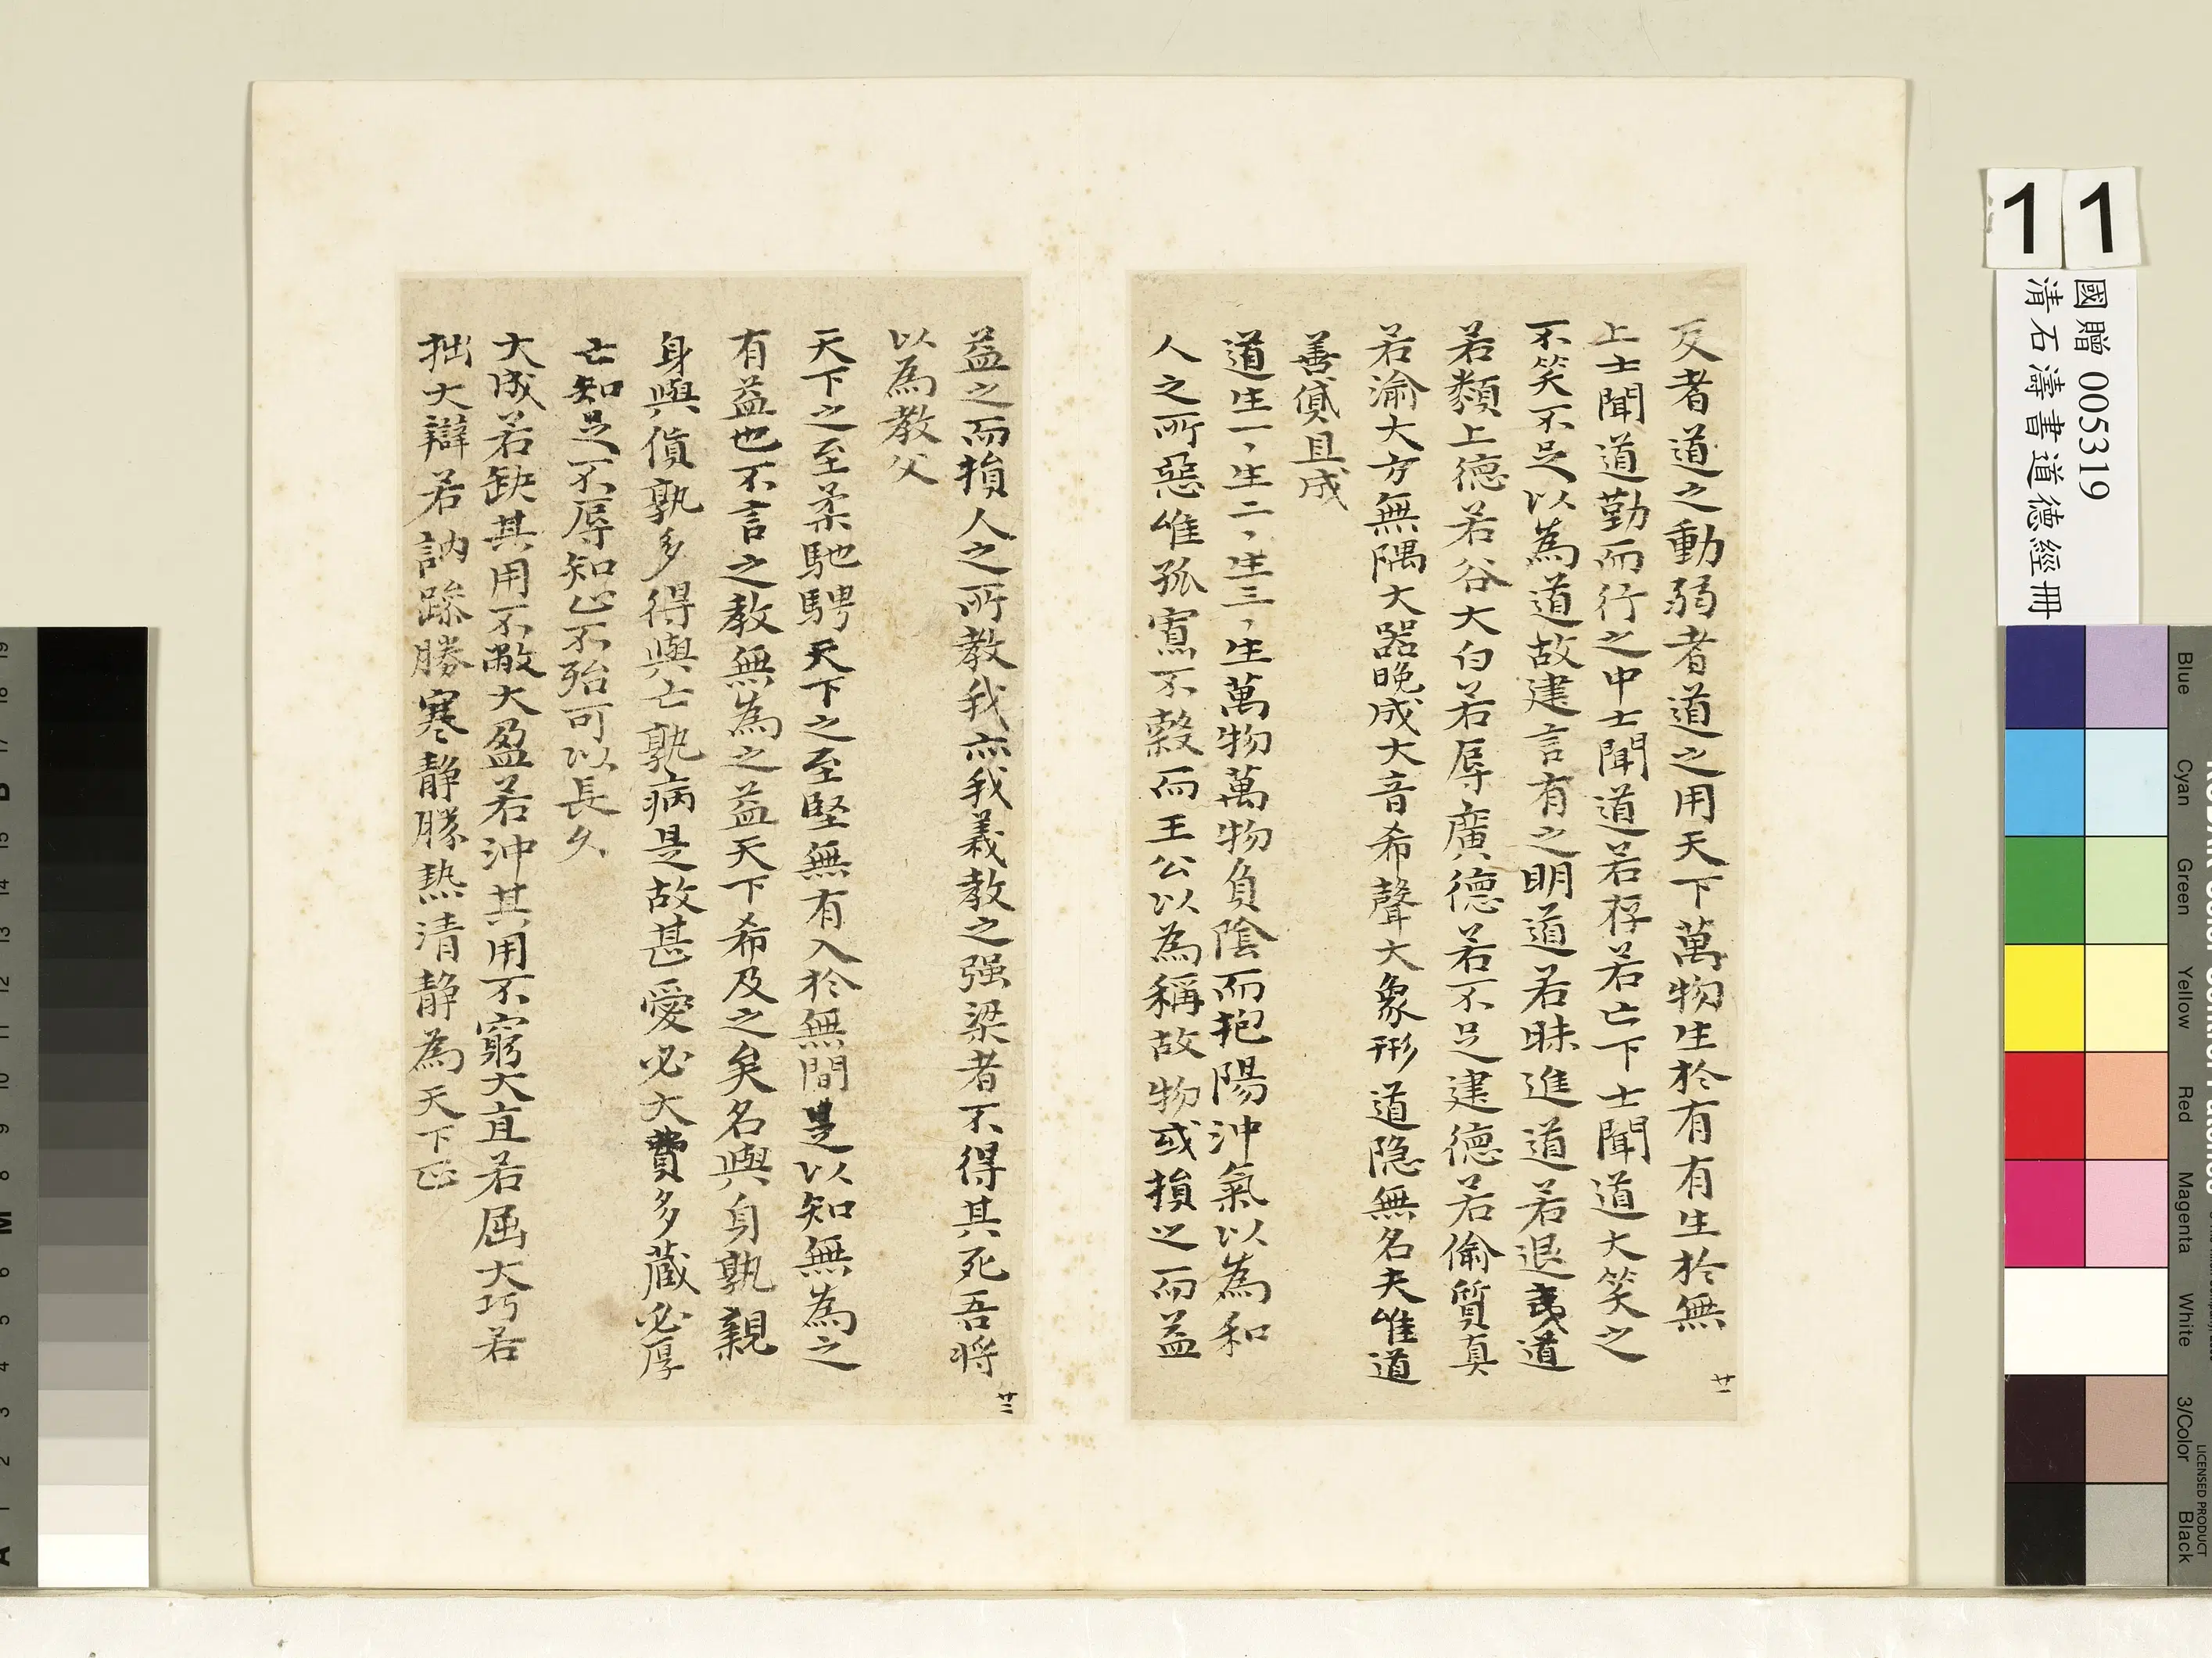 11
國贈 005319
清石濤書道德經冊
反者道之動弱者道之用天下萬物生於有有生於無
上士聞道勤而行之中士聞道若存若亡下士聞道大笑之
不笑不足以為道故建言有之明道若昧進道若退夷道
若類上德若谷大白若辱廣德若不足建德若偷質真
若渝大方無隅大器晚成大音希聲大象無形道隱無名夫唯道
善貸且成
道生一、生二、生三、生萬物萬物負陰而抱陽沖氣以為和
人之所惡唯孤寡不穀而王公以為稱故物或損之而益
廿一
益之而損人之所教我亦我義教之强梁者不得其死吾将
以為教父
天下之至柔馳騁天下之至堅無有入於無間是以知無為之
有益也不言之教無為之益天下希及之矣名與身孰親
身與貨孰多得與亡孰病是故甚愛必大費多蔵必厚
亡知足不辱知止不殆可以長久
大成若缺其用不敝大盈若沖其用不窮大直若屈大巧若
拙大辯若訥躁勝寒静勝熱清静為天下正
廿二
Blue
Cyan
Green
Yellow
Red
Magenta
White
3/Color
Black
LICENSED PRODUCT
19
18
17
B
15
14
13
12
11
10
9
8
M
6
5
4
3
2
1
A